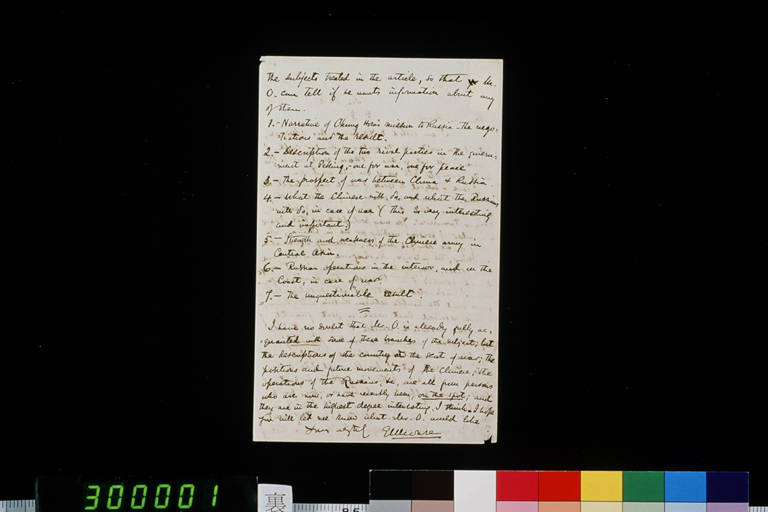 The subjects treated in the article, so that Mr.
O. can tell if he wants information about any
of them.
1.- Narrative of Chung How's mission to Russia - the nego-
tiations and the result.
2.- Description of the two rival parties in the govern-
ment at Peking; one for war, one for peace
3.- The prospect of war between China & Russia.
4.- What the Chinese will do, and what the Russians
will do, in case of war (This is very interesting
and important.)
5.- Strength and weakness of the Chinese army in
Central Asia.
6.- Russian operations in the interior, and on the
Coast, in case of war.
7.- The unquestionable result.
I have no doubt that Mr. O. is already fully ac-
quainted with some of these branches of the subject; but
the descriptions of the country at the seat of war; the
positions and future movements of the Chinese; the
operations of the Russians, &c, are all from persons
who are now, or have recently been, on the spot; and
they are in the highest degree interesting, I think. I hope
you will let me know what Mr. O. would like
Yours
300001
裏